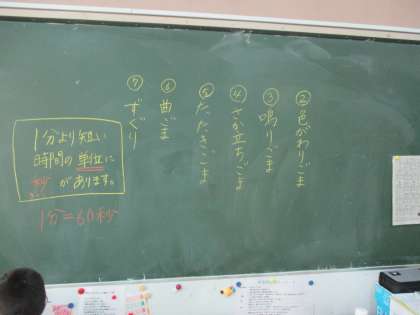 ②色がわりごま
③鳴りごま
④さか立ちごま
⑤たたきごま
⑥曲ごま
⑦ずぐり
1分より短い
時間の単位に
秒があります。
1分=60秒